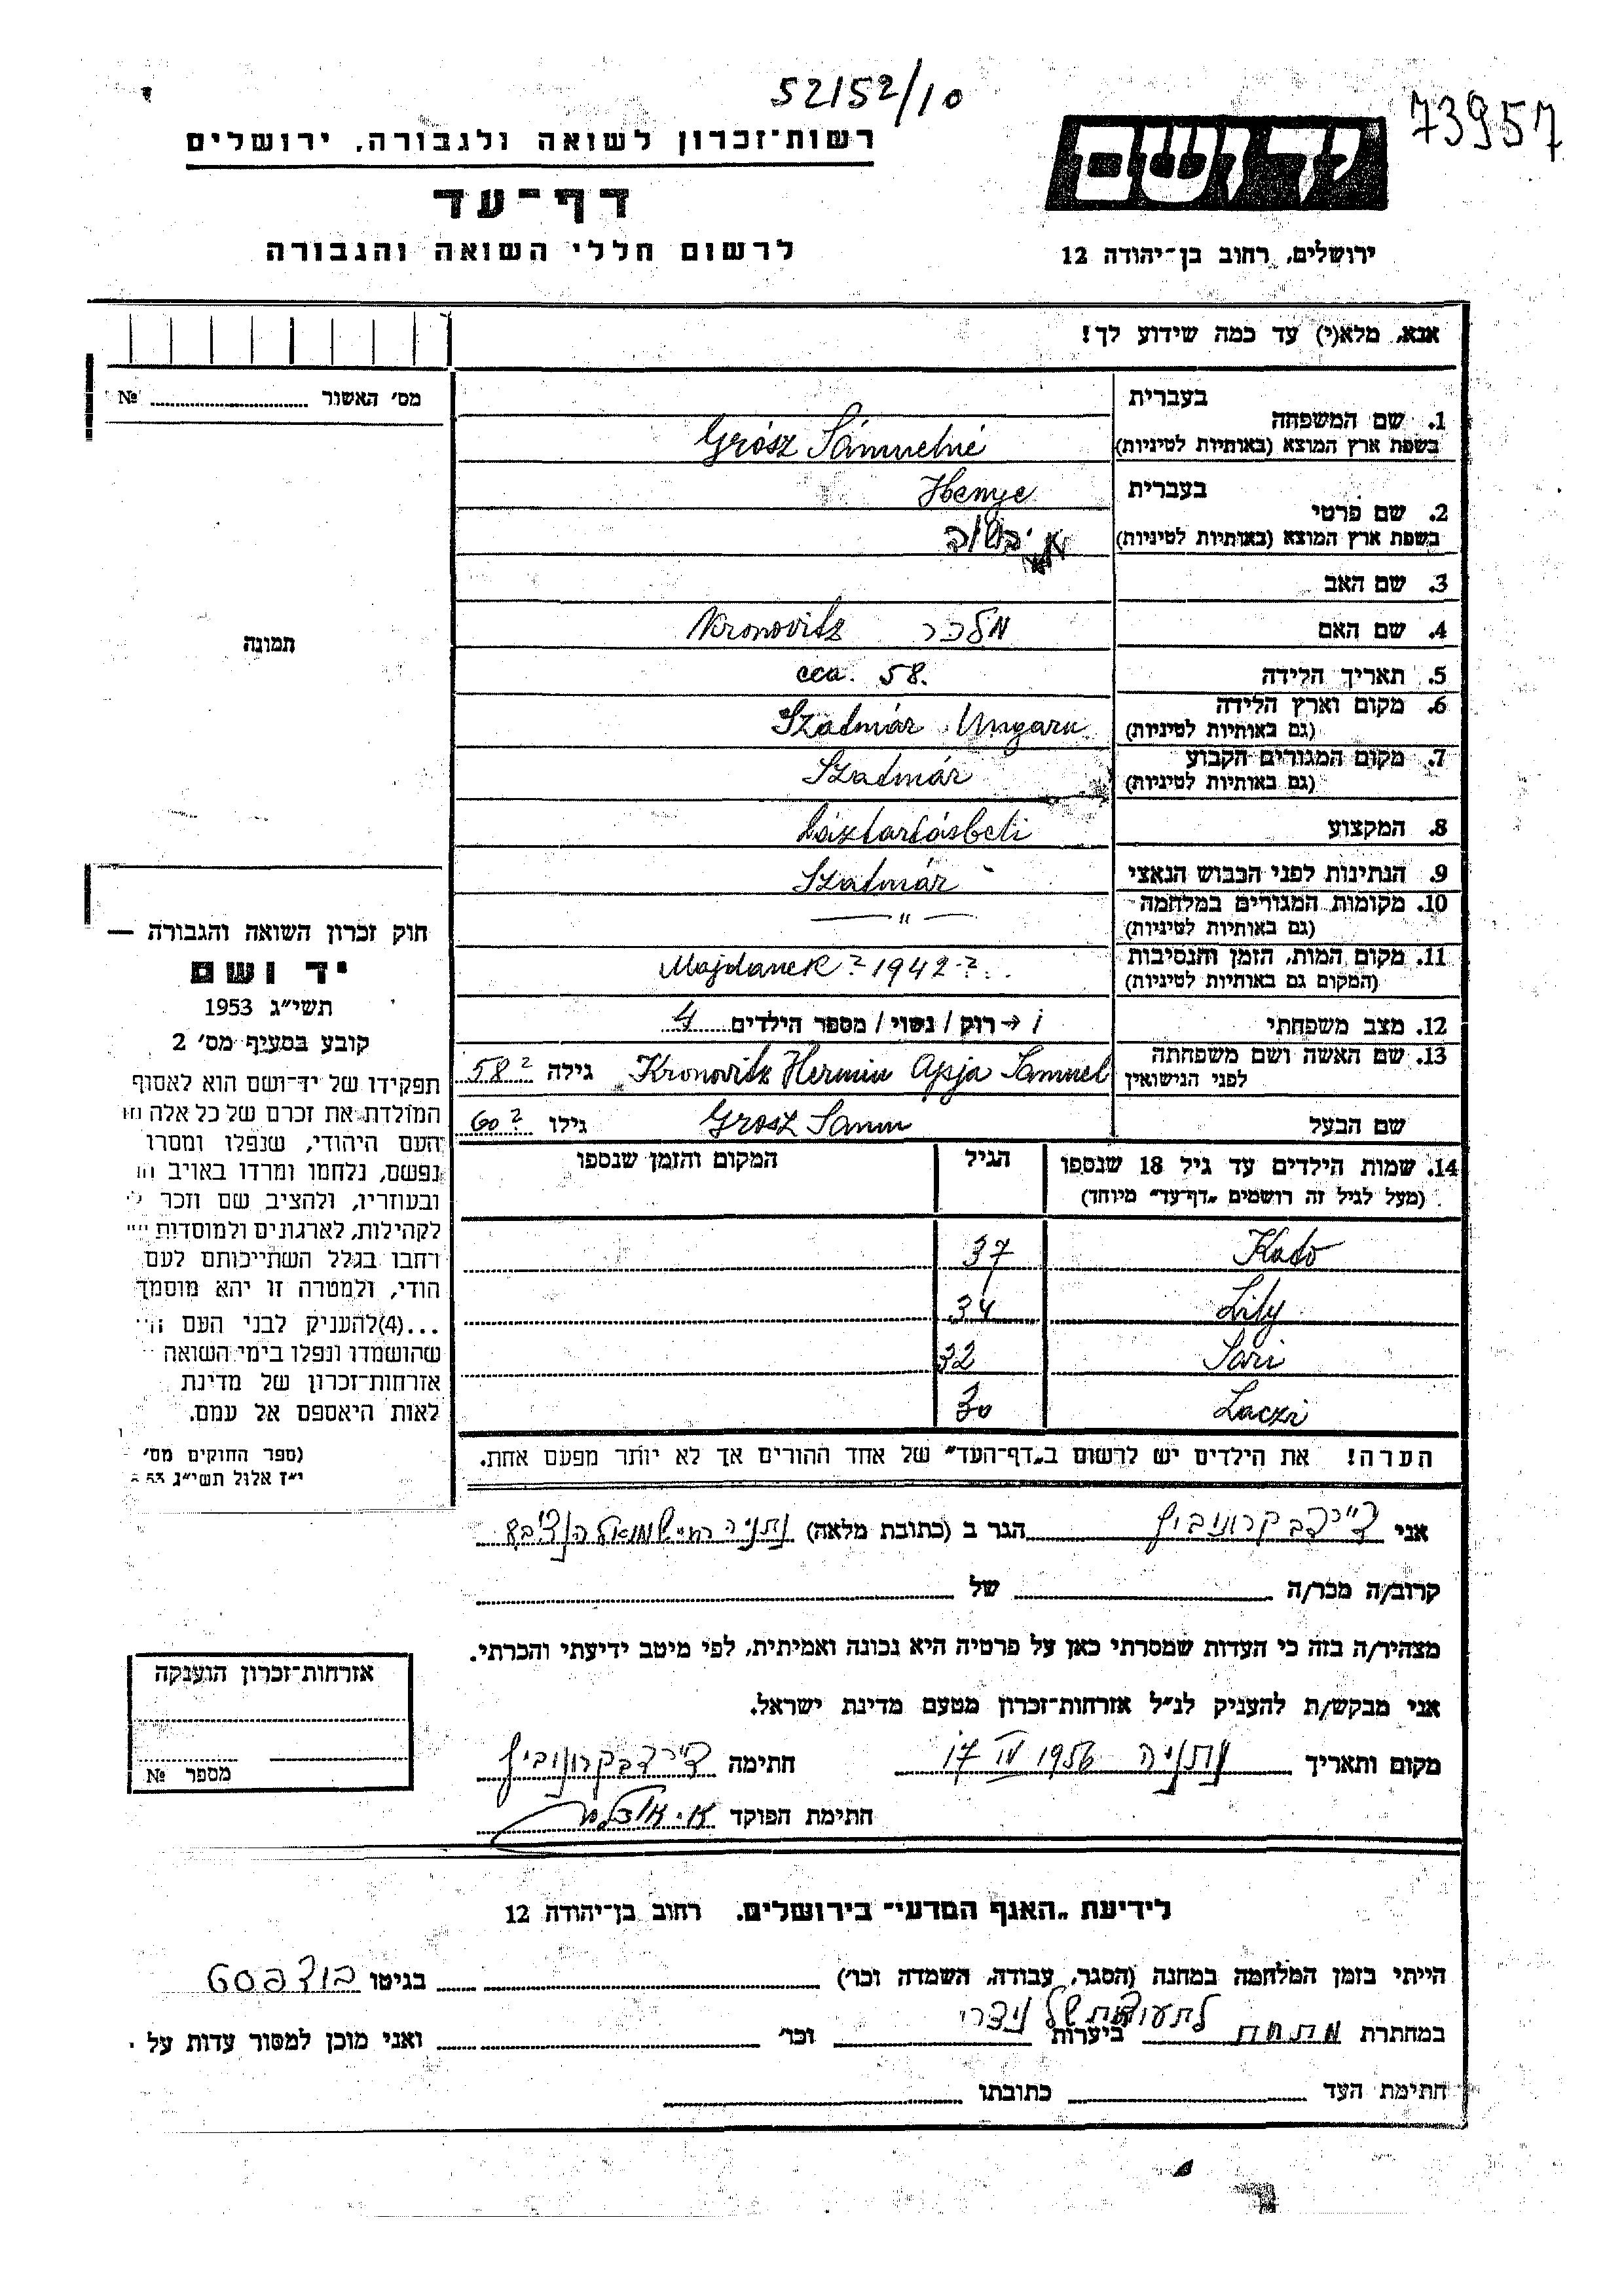 52152/10
73957
רשות־זכרון לשואה ולגבורה, ירושלים
יד ושם
דף־עד
לרשום חללי השואה והגבורה
ירושלים, רחוב בן־יהודה 12
אנא, מלא(י) עד כמה שידוע לך!
מס' האשור № 
בעברית
1. שם המשפחה
בשפת ארץ המוצא (באותיות לטיניות) Grósz Sámuelné
בעברית Henye
2. שם פרטי
בשפת ארץ המוצא (באותיות לטיניות)
3. שם האב
4. שם האם Kronovitz
5. תאריך הלידה cca. 58.
6. מקום וארץ הלידה Szatmár Ungaru
(גם באותיות לטיניות)
7. מקום המגורים הקבוע Szatmár
(גם באותיות לטיניות)
8. המקצוע háztartásbeli
9. הנתינות לפני הכבוש הנאצי Szatmár
10. מקומות המגורים במלחמה — " —
(גם באותיות לטיניות)
11. מקום המות, הזמן והנסיבות Majdanek? 1942?
(המקום גם באותיות לטיניות)
12. מצב משפחתי רוק / נשוי / מספר הילדים 4
13. שם האשה ושם משפחתה Kronovitz Hermin Apja Samuel גילה 58?
לפני הנישואין
שם הבעל Grosz Samu גילו 60?
14. שמות הילדים עד גיל 18 שנספו הגיל המקום והזמן שנספו
(מעל לגיל זה רושמים „דף־עד" מיוחד)
Kato 37
Lily 34
Sari 32
Laczi 30
הערה! את הילדים יש לרשום ב„דף־העד" של אחד ההורים אך לא יותר מפעם אחת.
תמונה
חוק זכרון השואה והגבורה —
יד ושם
תשי"ג 1953
קובע בסעיף מס' 2
תפקידו של יד־ושם הוא לאסוף
המולדת את זכרם של כל אלה
העם היהודי, שנפלו ומסרו
נפשם, נלחמו ומרדו באויב
ובעוזריו, ולהציב שם וזכר
לקהילות, לארגונים ולמוסדות
רחבו בגלל השתייכותם לעם
הודי, ולמטרה זו יהא מוסמך
...(4)להעניק לבני העם
שהושמדו ונפלו בימי השואה
אזרחות־זכרון של מדינת
לאות היאספם אל עמם.
(ספר החוקים מס'
י"ז אלול תשי"ג 53
אני קרונוביץ הגר ב (כתובת מלאה) נתניה
קרוב/ה מכר/ה של
מצהיר/ה בזה כי העדות שמסרתי כאן על פרטיה היא נכונה ואמיתית, לפי מיטב ידיעתי והכרתי.
אני מבקש/ת להעניק לנ"ל אזרחות־זכרון מטעם מדינת ישראל.
מקום ותאריך נתניה 1956 17 חתימה קרונוביץ
חתימת הפוקד
אזרחות־זכרון הוענקה
מספר №
לידיעת „האגף המדעי" בירושלים, רחוב בן־יהודה 12
הייתי בזמן המלחמה במחנה (הסגר, עבודה, השמדה וכו') בגיטו בודפסט
במחתרת ביערות וכו' ואני מוכן למסור עדות על
חתימת העד כתובתו